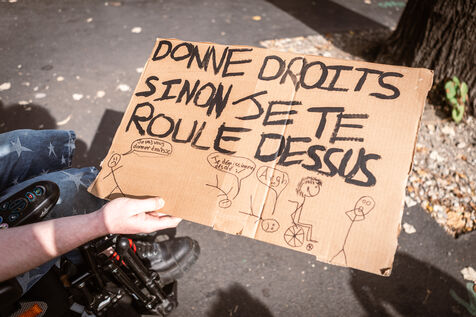 DONNE DROITS
SINON JE TE
ROULE DESSUS
Argh